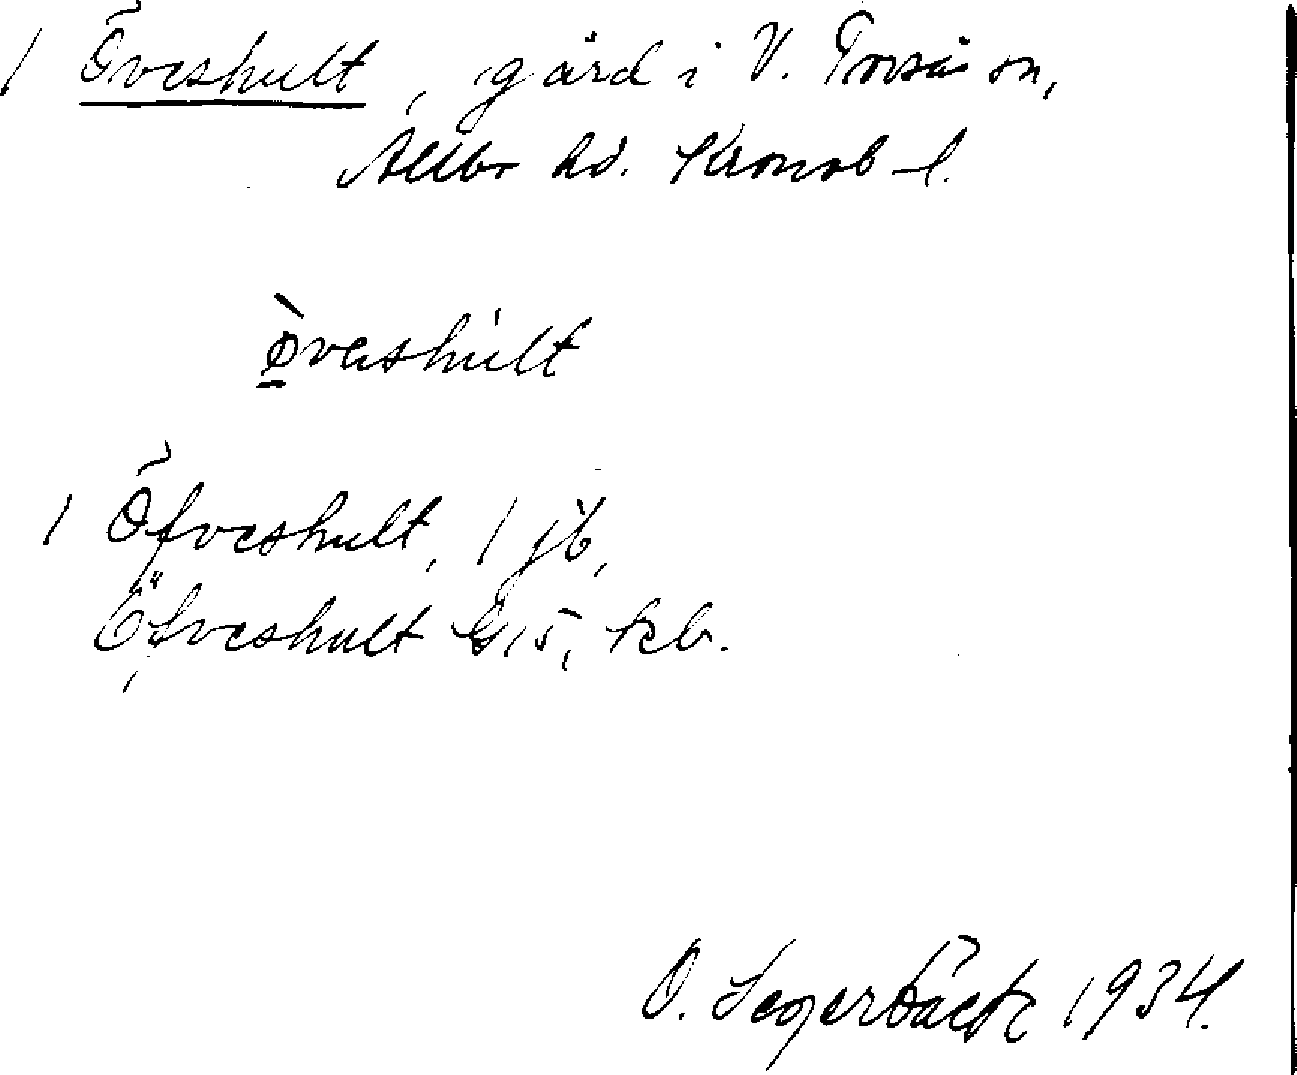 1 Öveshult, gård i V. Torsås sn,
Allbo hd. Kronob l.
ø̀veshúlt
1 Öfveshult, 1 jb,
Öfveshult G15, kb.
O. Segerbäck 1934.